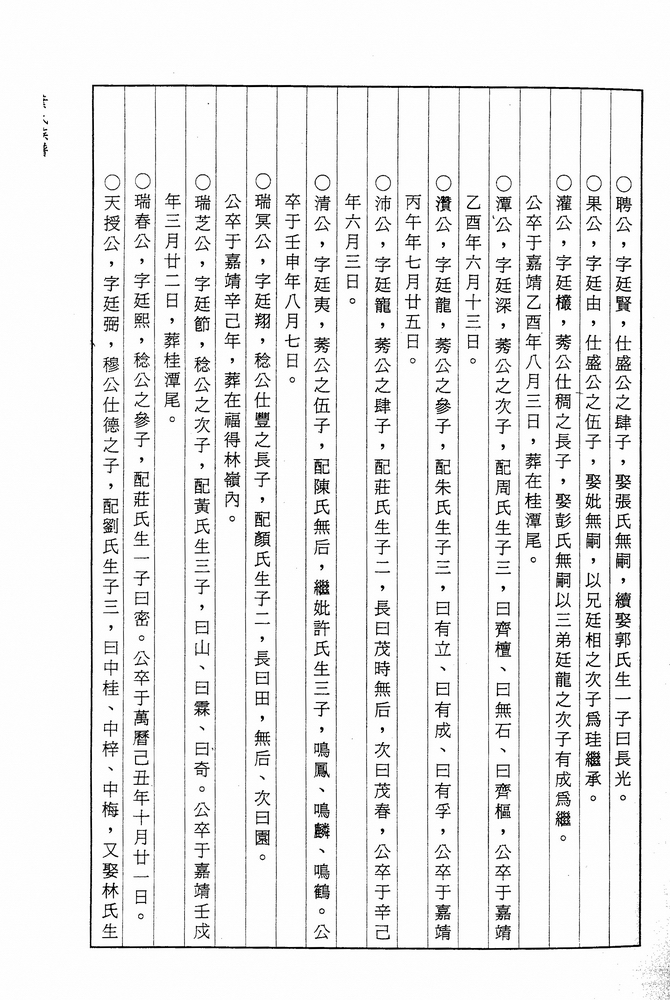 ○聘公，字廷賢，仕盛公之肆子，娶張氏無嗣，續娶郭氏生一子曰長光。
○果公，字廷由，仕盛公之伍子，娶妣無嗣，以兄廷相之次子為珪繼承。
○灌公，字廷欉，莠公仕稠之長子，娶彭氏無嗣以三弟廷龍之次子有成為繼。
公卒于嘉靖乙酉年八月三日，葬在桂潭尾。
○潭公，字廷深，莠公之次子，配周氏生子三，曰齊檀、曰無石、曰齊樞，公卒于嘉靖
乙酉年六月十三日。
○灒公，字廷龍，莠公之參子，配朱氏生子三，曰有立、曰有成、曰有孚，公卒于嘉靖
丙午年七月廿五日。
○沛公，字廷寵，莠公之肆子，配莊氏生子二，長曰茂時無后，次曰茂春，公卒于辛己
年六月三日。
○清公，字廷夷，莠公之伍子，配陳氏無后，繼妣許氏生三子，鳴鳳、鳴麟、鳴鶴。公
卒于壬申年八月七日。
○瑞冥公，字廷翔，稔公仕豐之長子，配顏氏生子二，長曰田，無后、次曰園。
公卒于嘉靖辛己年，葬在福得林嶺內。
○瑞芝公，字廷節，稔公之次子，配黃氏生三子，曰山、曰霖、曰奇。公卒于嘉靖壬戍
年三月廿二日，葬桂潭尾。
○瑞春公，字廷熙，稔公之參子，配莊氏生一子曰密。公卒于萬曆己丑年十月廿一日。
○天授公，字廷弼，穆公仕德之子，配劉氏生子三，曰中桂、中梓、中梅，又娶林氏生